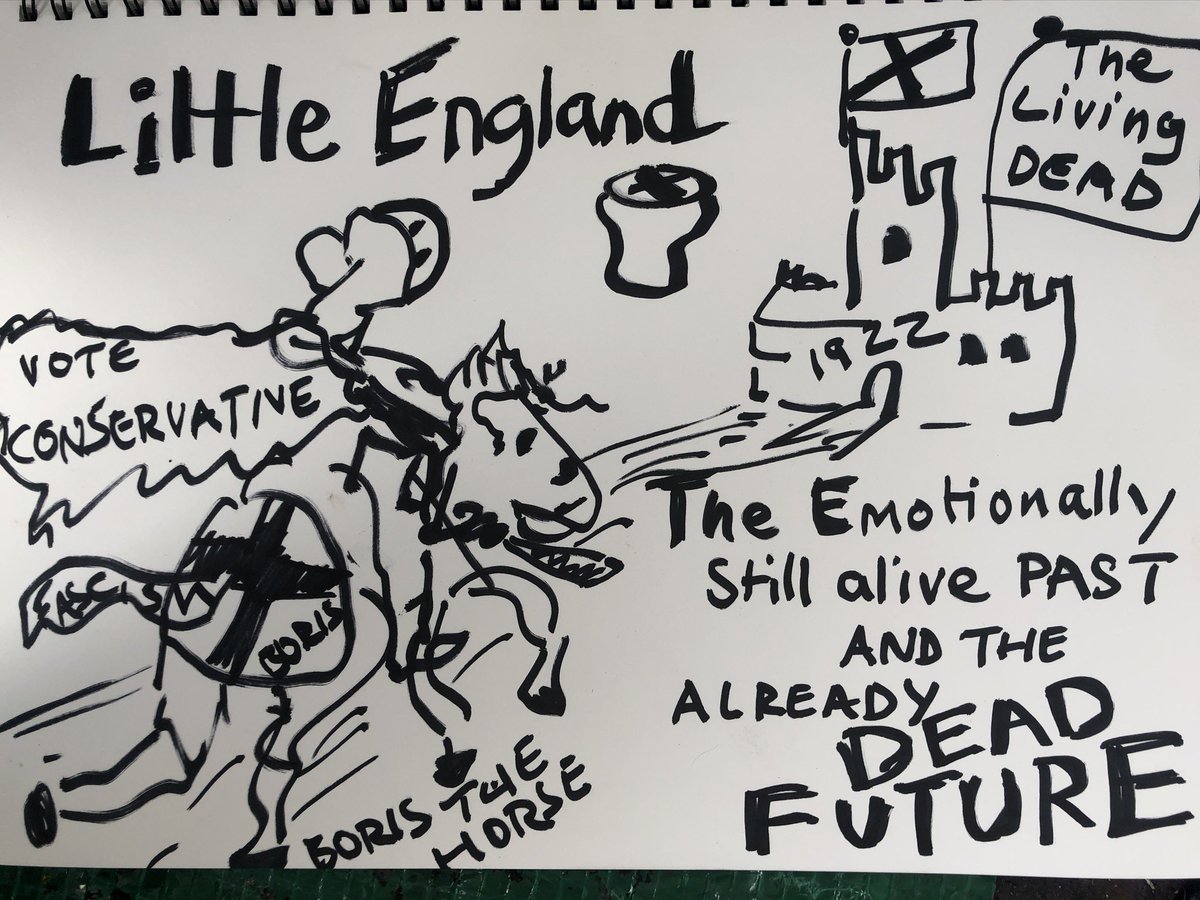 Little England
The
Living
DEAD
VOTE
CONSERVATIVE
1922
FASCISM
BORIS
BORIS THE
HORSE
The Emotionally
Still alive PAST
AND THE
ALREADY
DEAD
FUTURE